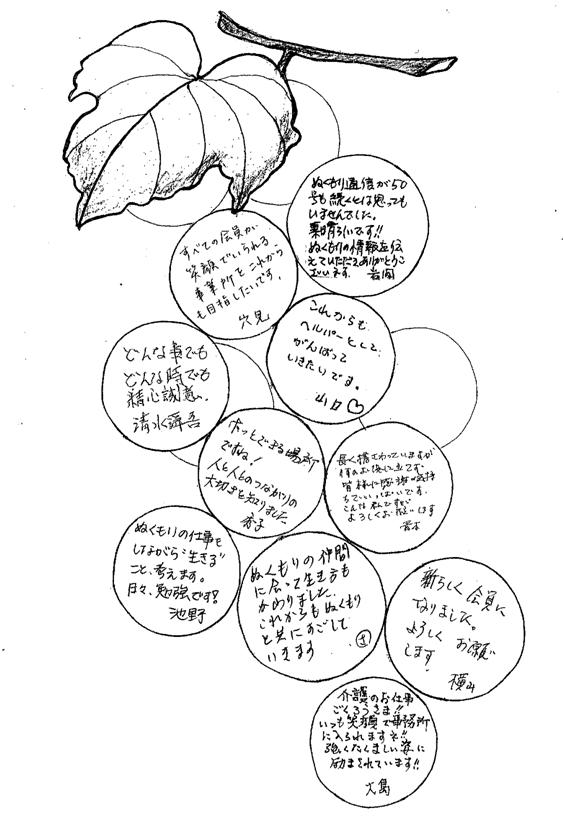 ぬくもり通信が50
号も続くとは思っても
いませんでした。
素晴らしいです!!
ぬくもりの情報を伝
えていただき、ありがとうご
ざいます。 岩間
すべての会員が、
笑顔でいられる
事業所をこれから
も目指したいです。
穴見
これからも
ヘルパーとして
がんばって
いきたいです。
山口♡
どんな事でも
どんな時でも
精心誠意、
清水
ホッとできる場所
ですね!
人と人とのつながりの
大切さを知りました
長く携わっていますが
何のお役に立てず、
皆様に感謝の気持
ちでいっぱいです。
こんな私ですが
よろしくお願いします
ぬくもりの仕事を
しながら“生きる”
こと、考えます。
日々、勉強です!
池野
ぬくもりの仲間
に会って生き方も
かわりました。
これからもぬくもり
と共にすごして
いきます
新らしく会員に
なりました。
よろしくお願い
します。
横山
介護のお仕事
ごくろうさま!!
いつも笑顔で事務所
に入られますネ!!
強くたくましい姿に
励まされています!!
大島